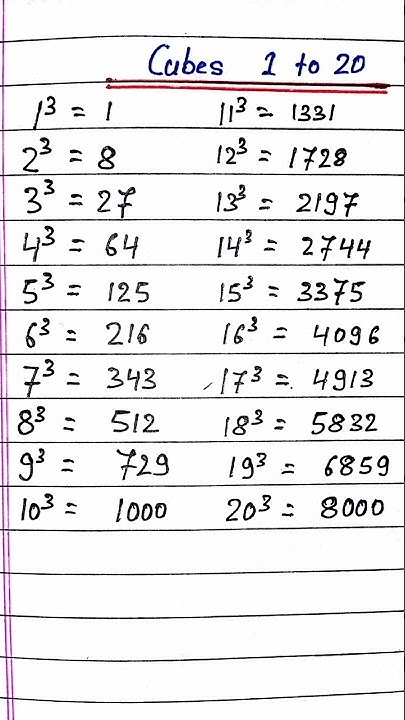 Cubes 1 to 20
1³ = 1 11³ = 1331
2³ = 8 12³ = 1728
3³ = 27 13³ = 2197
4³ = 64 14³ = 2744
5³ = 125 15³ = 3375
6³ = 216 16³ = 4096
7³ = 343 17³ = 4913
8³ = 512 18³ = 5832
9³ = 729 19³ = 6859
10³ = 1000 20³ = 8000